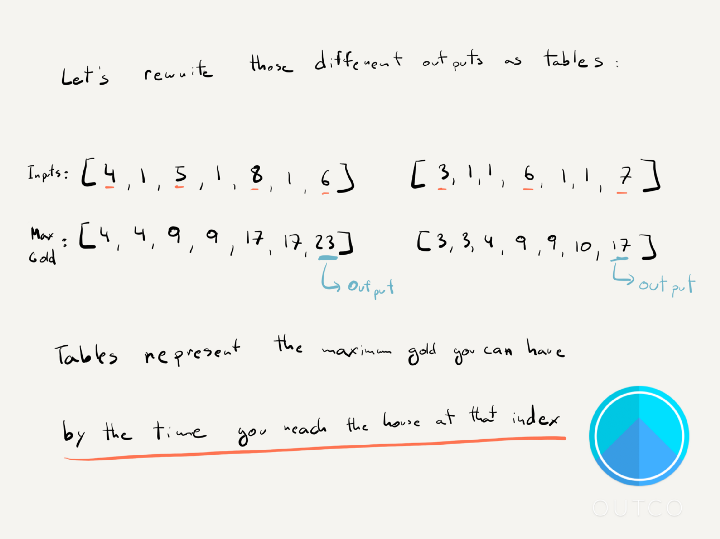 Let's rewrite those different outputs as tables:
Inputs: [4, 1, 5, 1, 8, 1, 6] [3, 1, 1, 6, 1, 1, 7]
Max Gold: [4, 4, 9, 9, 17, 17, 23] [3, 3, 4, 9, 9, 10, 17]
output output
Tables represent the maximum gold you can have
by the time you reach the house at that index
OUTCO